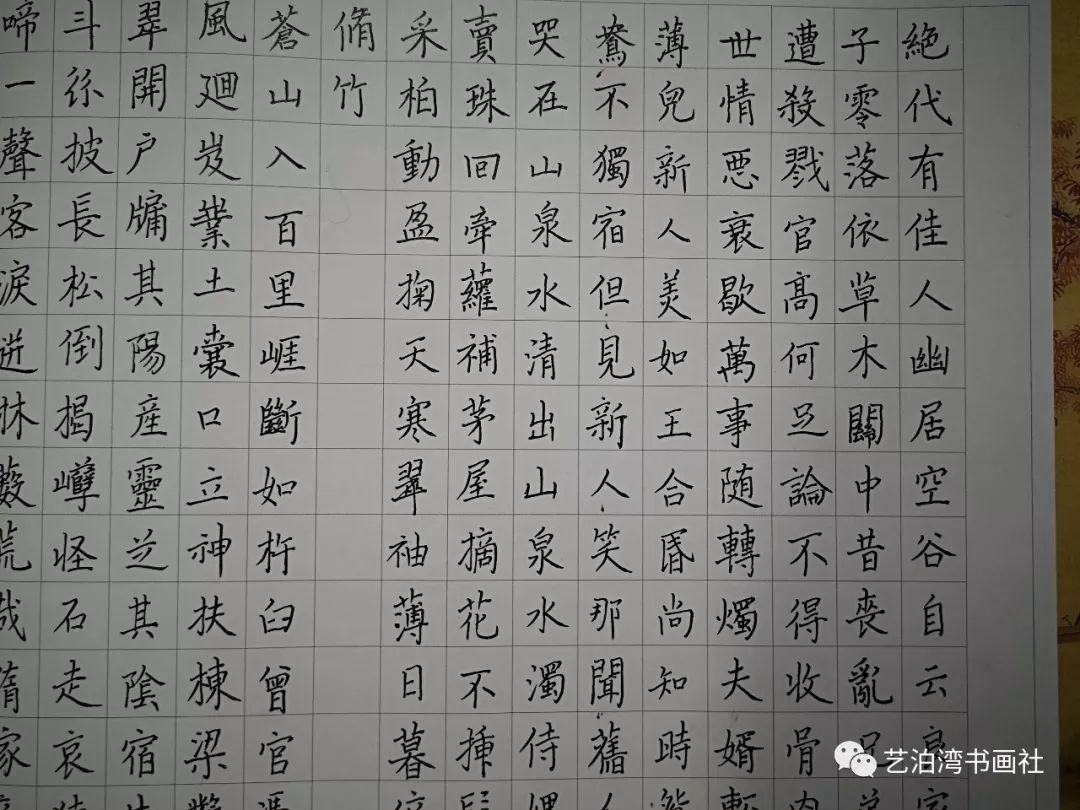 絕代有佳人幽居空谷自云
子零落依草木關中昔喪亂兄
遭殺戮官高何足論不得收骨肉
世情惡衰歇萬事随轉燭夫婿
薄兒新人美如王合昏尚知時
鴦不獨宿但見新人笑那聞舊人
哭在山泉水清出山泉水濁侍
賣珠回牽蘿補茅屋摘花不插
采柏動盈掬天寒翠袖薄日暮倚
脩竹
蒼山入百里崕斷如杵臼曾官
風廻岌業土囊口立神扶棟梁
翠開户牖其陽産靈芝其陰宿牛
斗紛披長松倒揭巘怪石走哀
啼一聲客淚迸林藪荒哉隋家
艺泊湾书画社